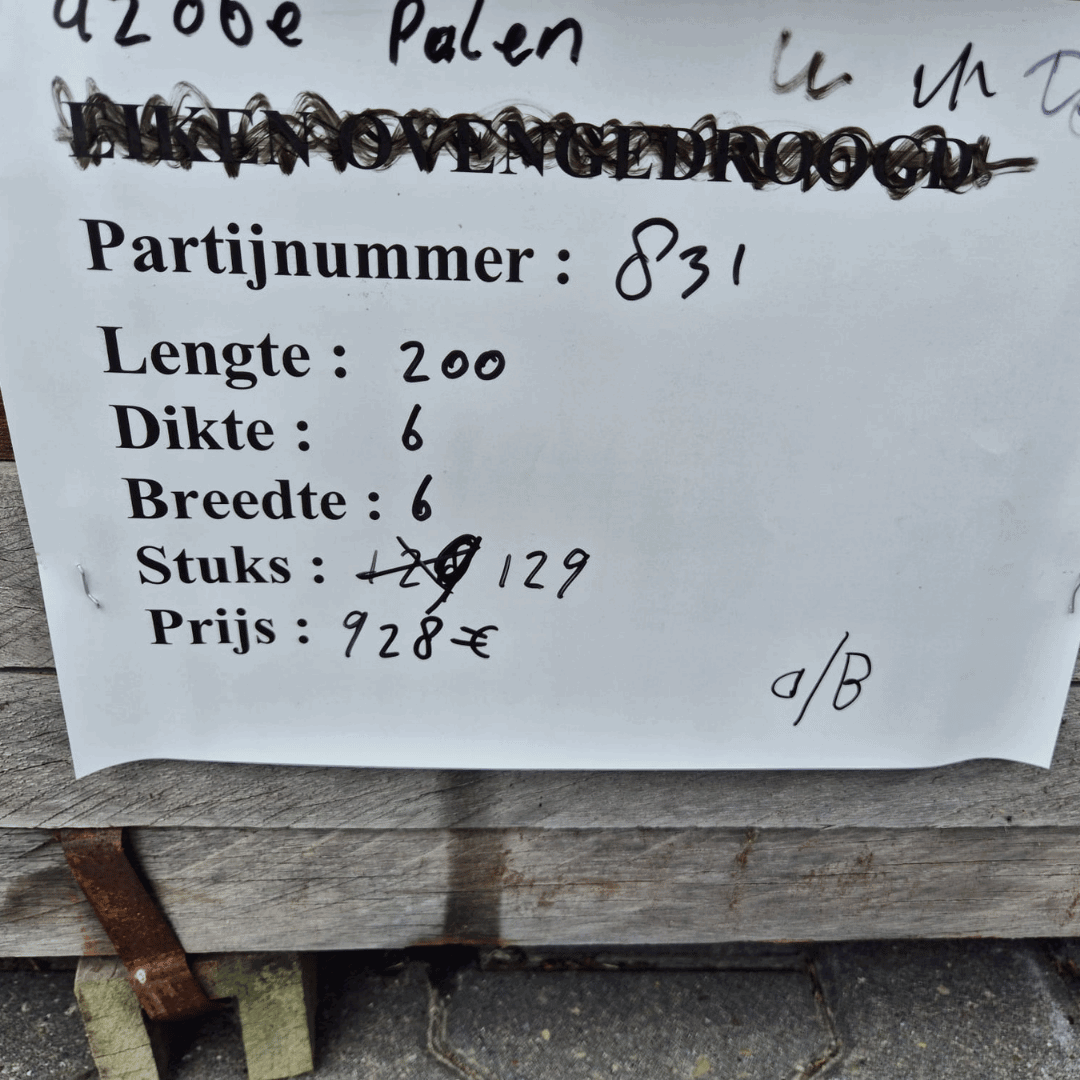 Palen
EIKEN OVENGEDROOGD
Partijnummer : 831
Lengte : 200
Dikte : 6
Breedte : 6
Stuks : 129
Prijs : 928 €
a/B